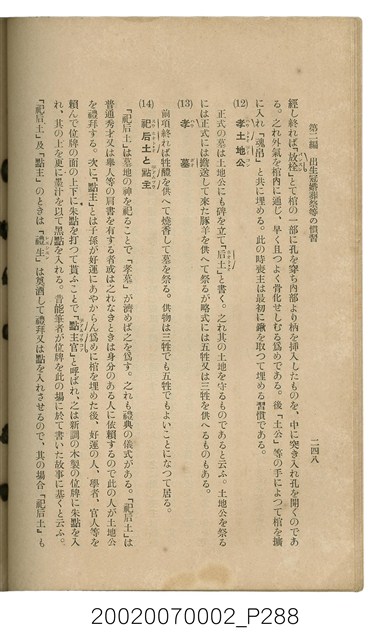 第二編 出生冠婚葬祭等の慣習
二四八
經し終れば「放栓」とて棺の一部に孔を穿ち内部より枘を挿入したものを、中に突き入れ孔を開くのであ
る。之れ外氣を棺内に通じ、早く且つよく骨化せしむる爲めである。後「土公」等の手によつて棺を擴
に入れ「魂帛」と共に埋める。此の時喪主は最初に鍬を取つて埋める習慣である。
(12) 孝土地公
正式の墓は土地公にも碑を立て「后土」と書く。之れ其の土地を守るものであると云ふ。土地公を祭る
には正式には擔送して來た豚羊を供へて祭るが略式には五牲又は三牲を供へるものもある。
(13) 孝 墓
前項終れば牲醴を供へて燒香して墓を祭る。供物は三牲でも五牲でもよいことになつて居る。
(14) 祀后土と點主
「祀后土」は墓地の神を祀ることで「孝墓」が濟めば之を爲す。之れも禮典の儀式がある。「祀后土」は
普通秀才又は擧人等の肩書を有する者或は之れなきときは身分のある人に依賴するので此の人が土地公
を禮拜する。次に「點主」とは子孫が好運にあやからん爲めに棺を埋めた後、好運の人、學者、官人等を
賴んで位牌の面の上下に朱點を打つて貰ふことで「點主官」と呼ばれ、之は新調の木製の位牌に朱點を入
れ、其の上を更に墨汁を以て黑點を入れる。昔能筆者が位牌を此の場に於て書いた故事に基くと云ふ。
「祀后土」及「點主」のときは「禮生」は奠酒して禮拜又は點を入れさせるので、其の場合「祀后土」も
20020070002_P288